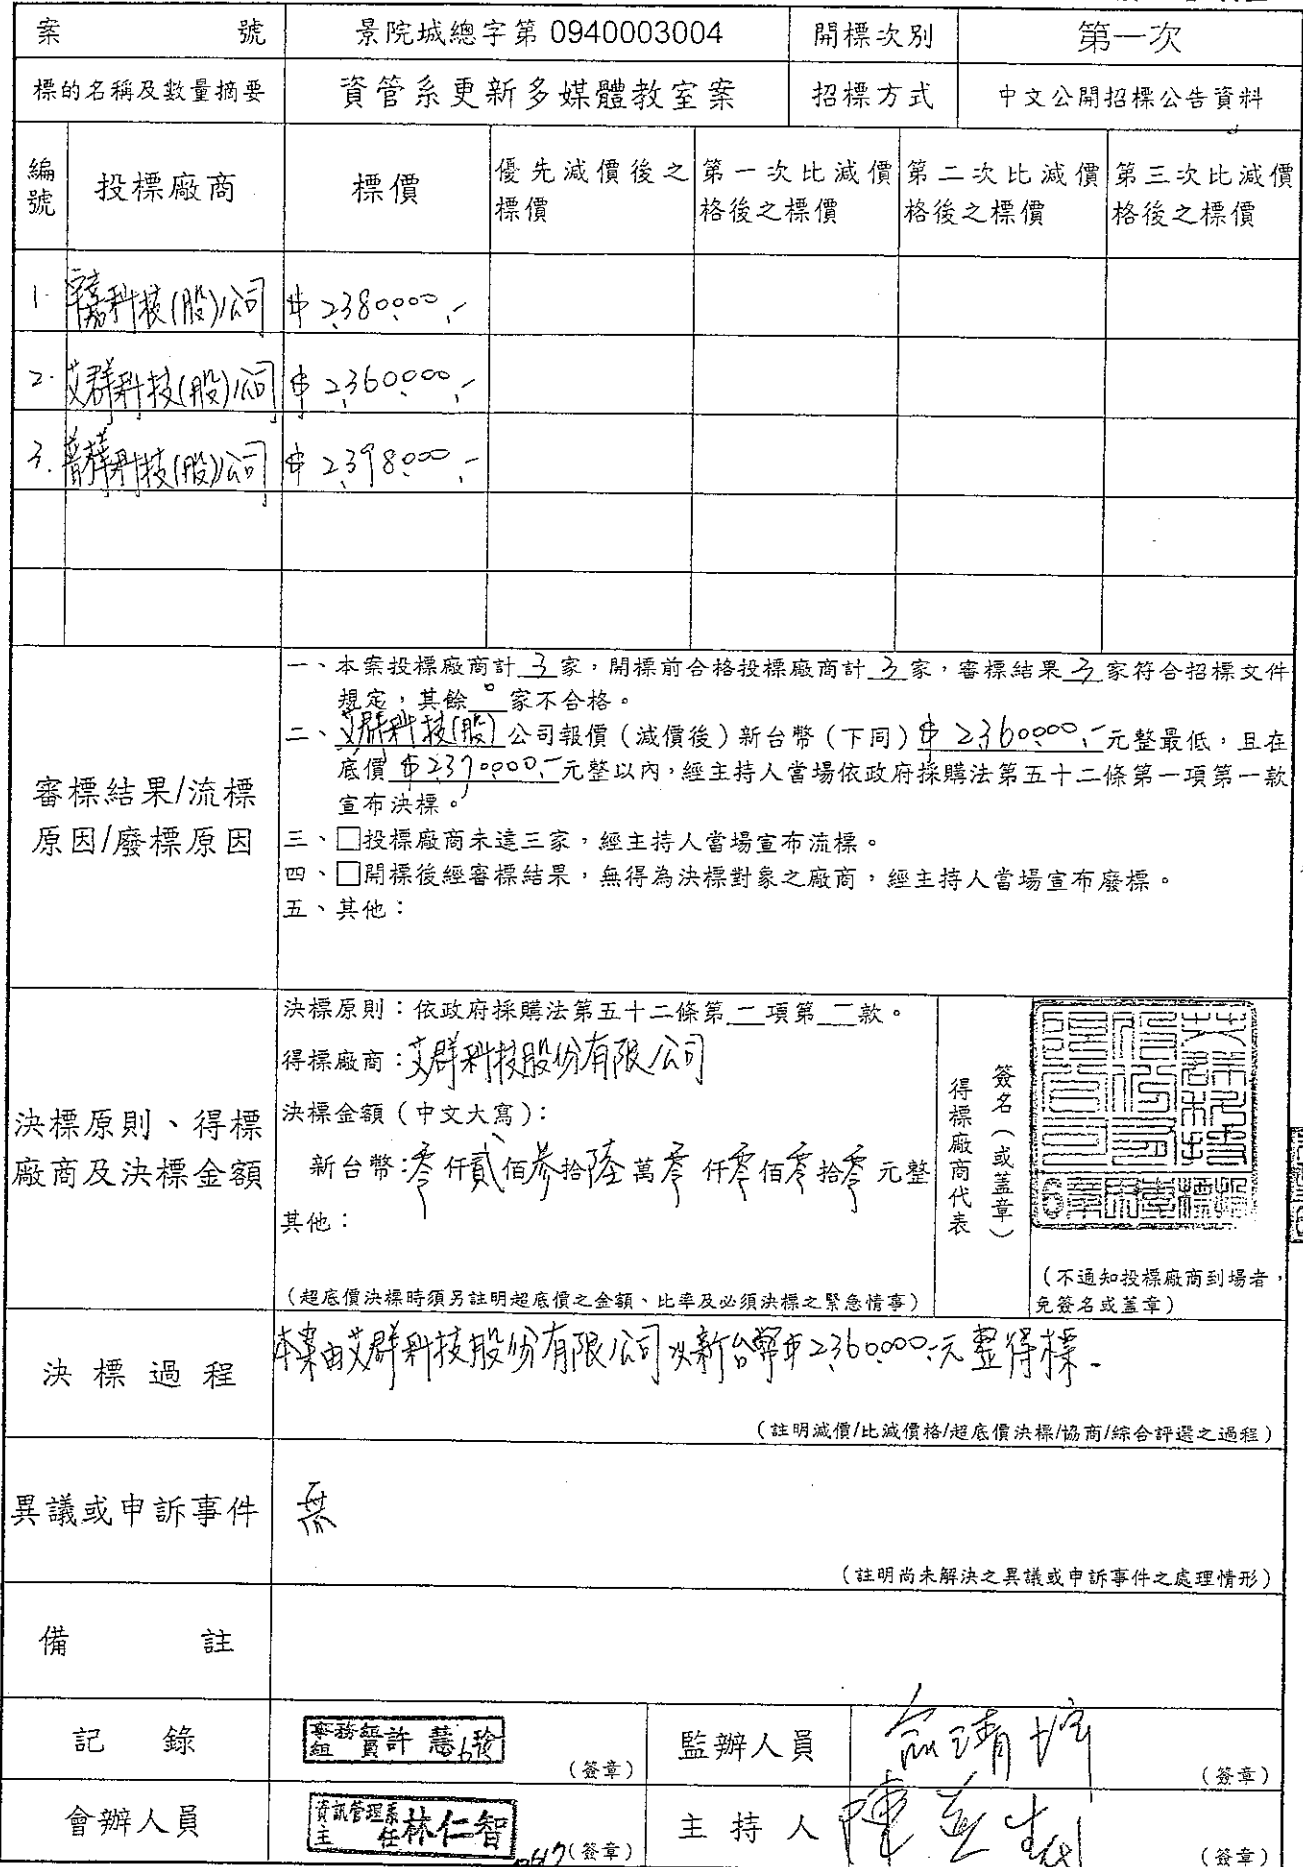 案 號 景院城總字第 0940003004 開標次別 第一次
標的名稱及數量摘要 資管系更新多媒體教室案 招標方式 中文公開招標公告資料
編號 投標廠商 標價 優先減價後之標價 第一次比減價格後之標價 第二次比減價格後之標價 第三次比減價格後之標價
1. 科技(股)公司 $2,380,000.-
2. 艾群科技(股)公司 $2,360,000.-
3. 科技(股)公司 $2,398,000.-
審標結果/流標
原因/廢標原因
一、本案投標廠商計 3 家,開標前合格投標廠商計 3 家,審標結果 3 家符合招標文件
規定,其餘 0 家不合格。
二、艾群科技(股)公司報價(減價後)新台幣(下同)$2,360,000.-元整最低,且在
底價 $2,370,000.-元整以內,經主持人當場依政府採購法第五十二條第一項第一款
宣布決標。
三、□投標廠商未達三家,經主持人當場宣布流標。
四、□開標後經審標結果,無得為決標對象之廠商,經主持人當場宣布廢標。
五、其他:
決標原則、得標
廠商及決標金額
決標原則:依政府採購法第五十二條第一項第一款。
得標廠商:艾群科技股份有限公司
決標金額(中文大寫):
新台幣:零仟貳佰參拾陸萬零仟零佰零拾零元整
其他:
(超底價決標時須另註明超底價之金額、比率及必須決標之緊急情事)
得標廠商代表
簽名(或蓋章)
(不通知投標廠商到場者,
免簽名或蓋章)
決標過程
本案由艾群科技股份有限公司以新台幣$2,360,000.-元整得標.
(註明減價/比減價格/超底價決標/協商/綜合評選之過程)
異議或申訴事件 無
(註明尚未解決之異議或申訴事件之處理情形)
備 註
記 錄 事務組 組員 許慧 (簽章) 監辦人員 (簽章)
會辦人員 資訊管理系主任 林仁智 (簽章) 主持人 (簽章)